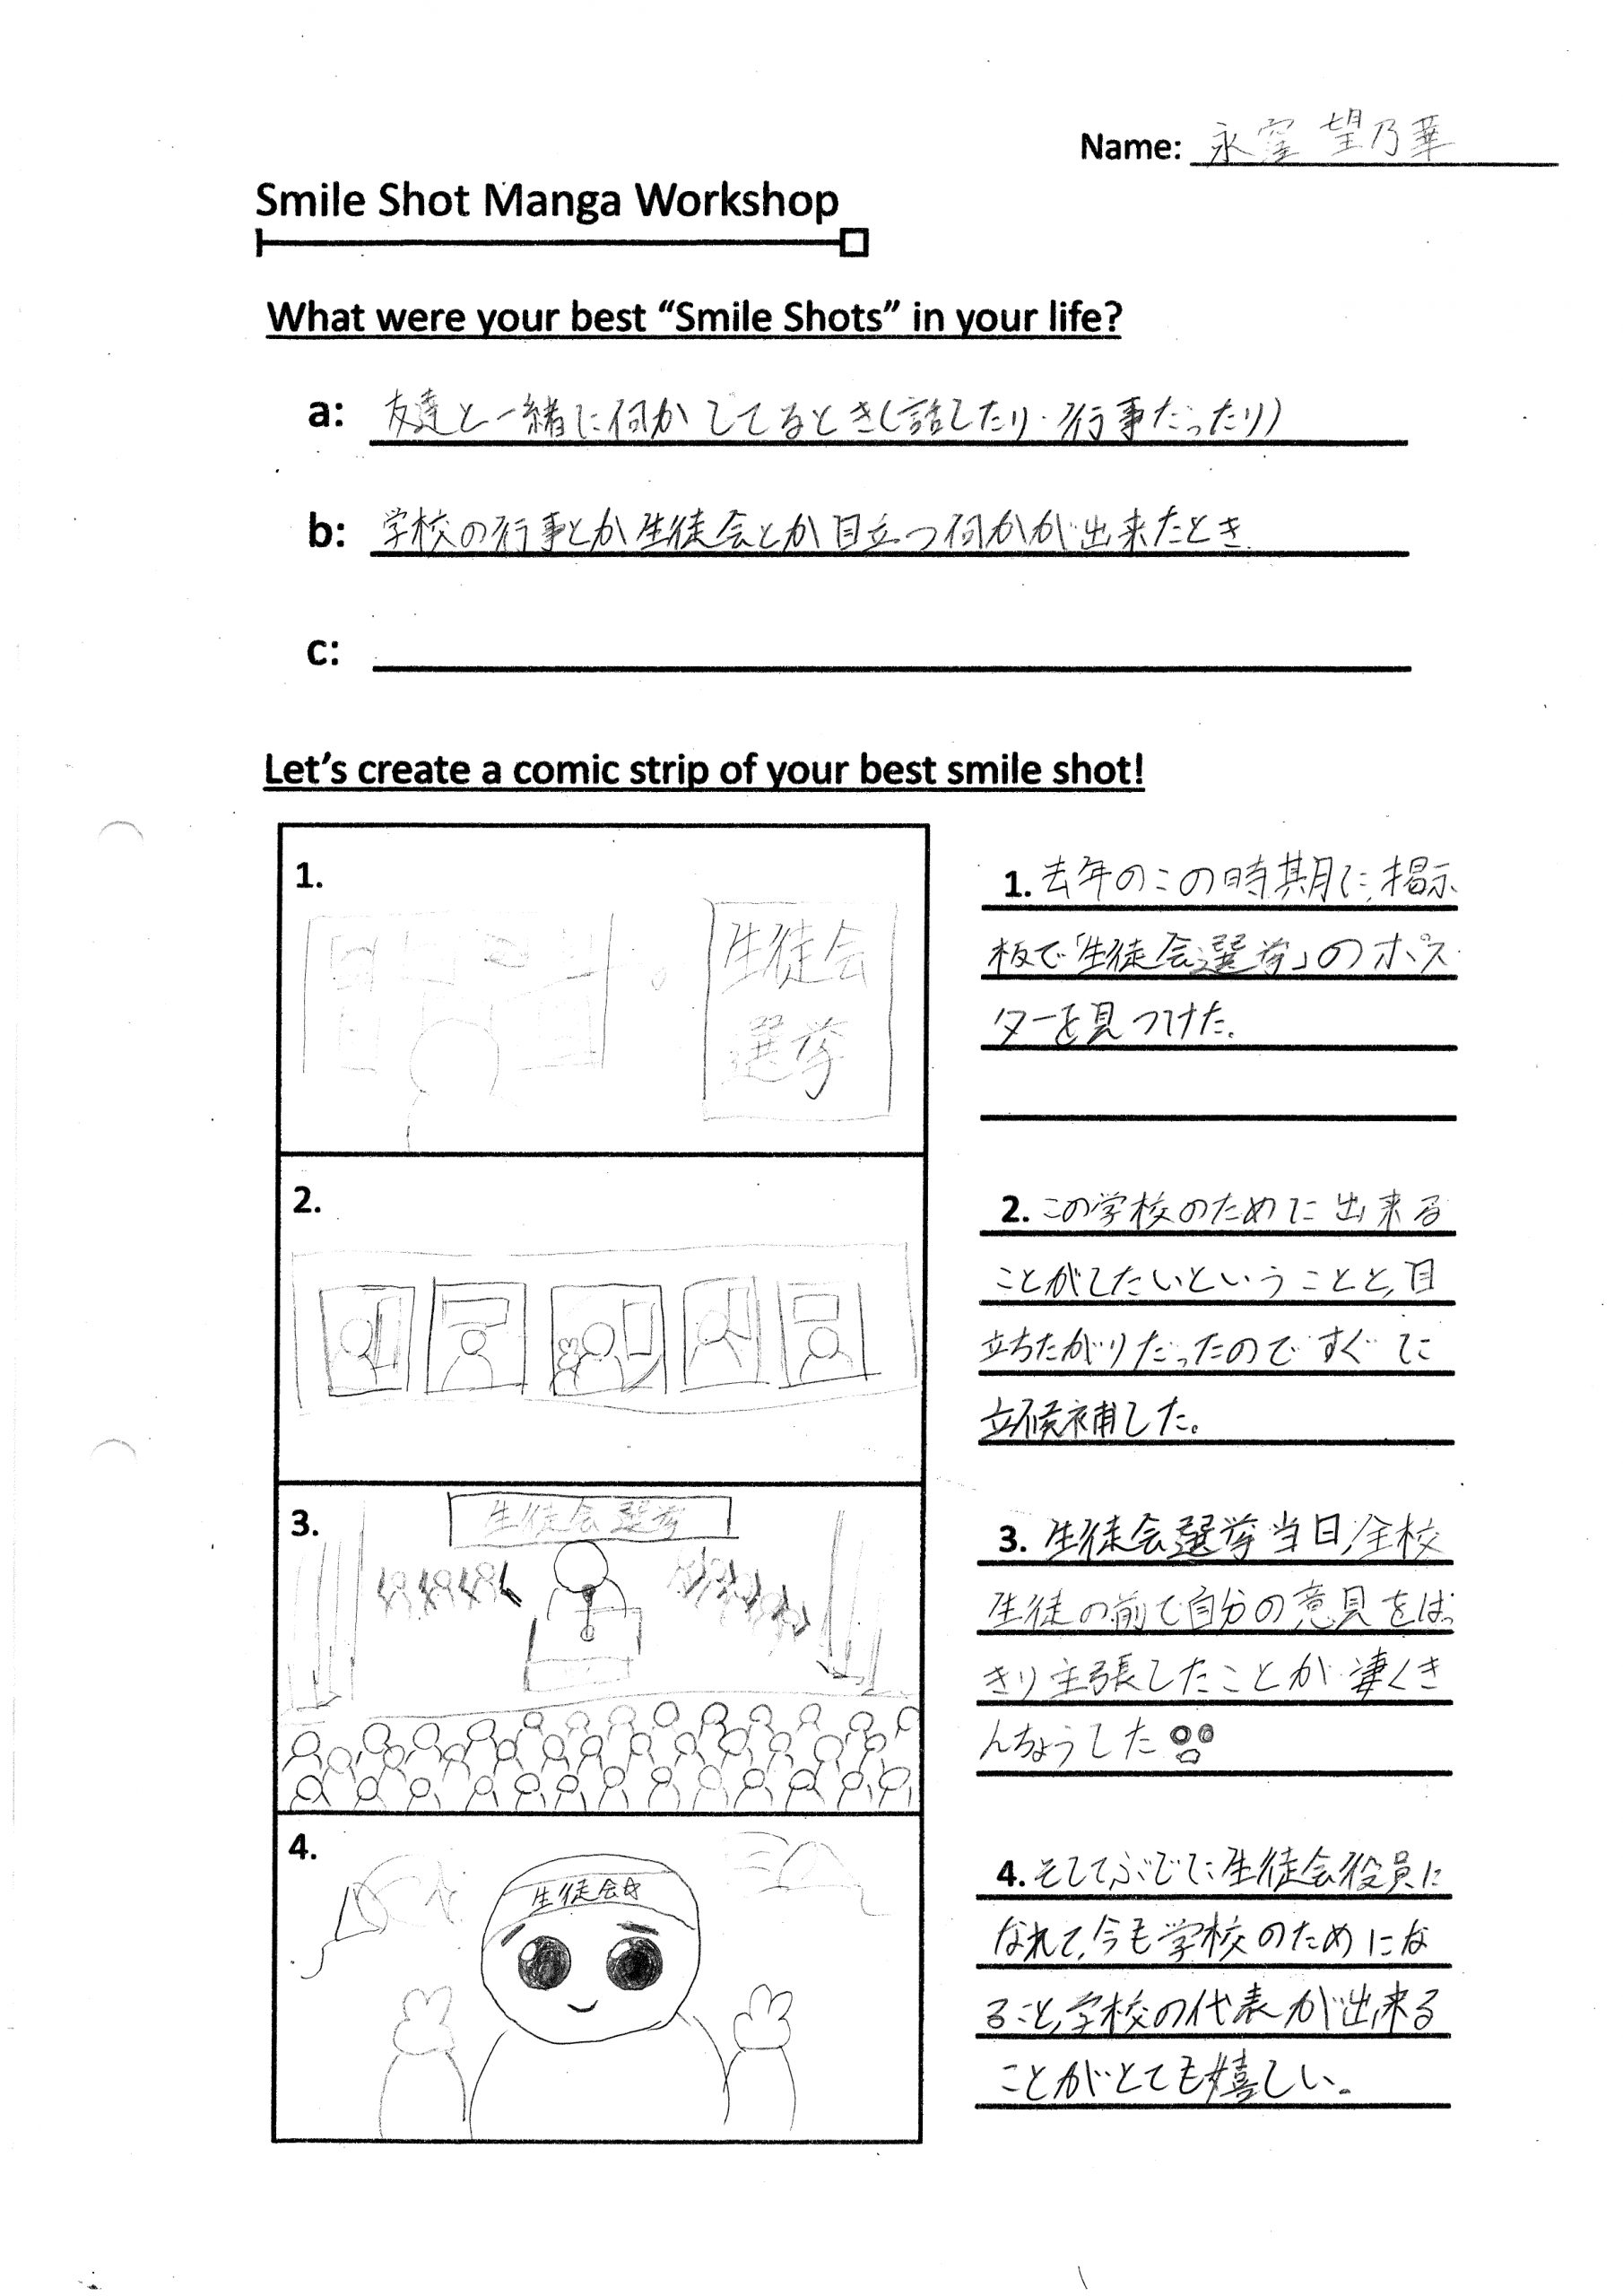 Name: 永窪 望乃華
Smile Shot Manga Workshop
What were your best “Smile Shots” in your life?
a: 友達と一緒に何かしてるとき(話したり・行事だったり)
b: 学校の行事とか生徒会とか目立つ何かが出来たとき
c:
Let’s create a comic strip of your best smile shot!
1.
生徒会
選挙
1. 去年のこの時期に、掲示
板で「生徒会選挙」のポス
ターを見つけた。
2.
2. この学校のために出来る
ことがしたいということと、目
立ちたがりだったのですぐに
立候補した。
3.
生徒会選挙
3. 生徒会選挙当日、全校
生徒の前で自分の意見をはっ
きり主張したことが凄くき
んちょうした
4.
生徒会☆
4. そしてぶじに生徒会役員に
なれて、今も学校のためにな
ること、学校の代表が出来る
ことがとても嬉しい。